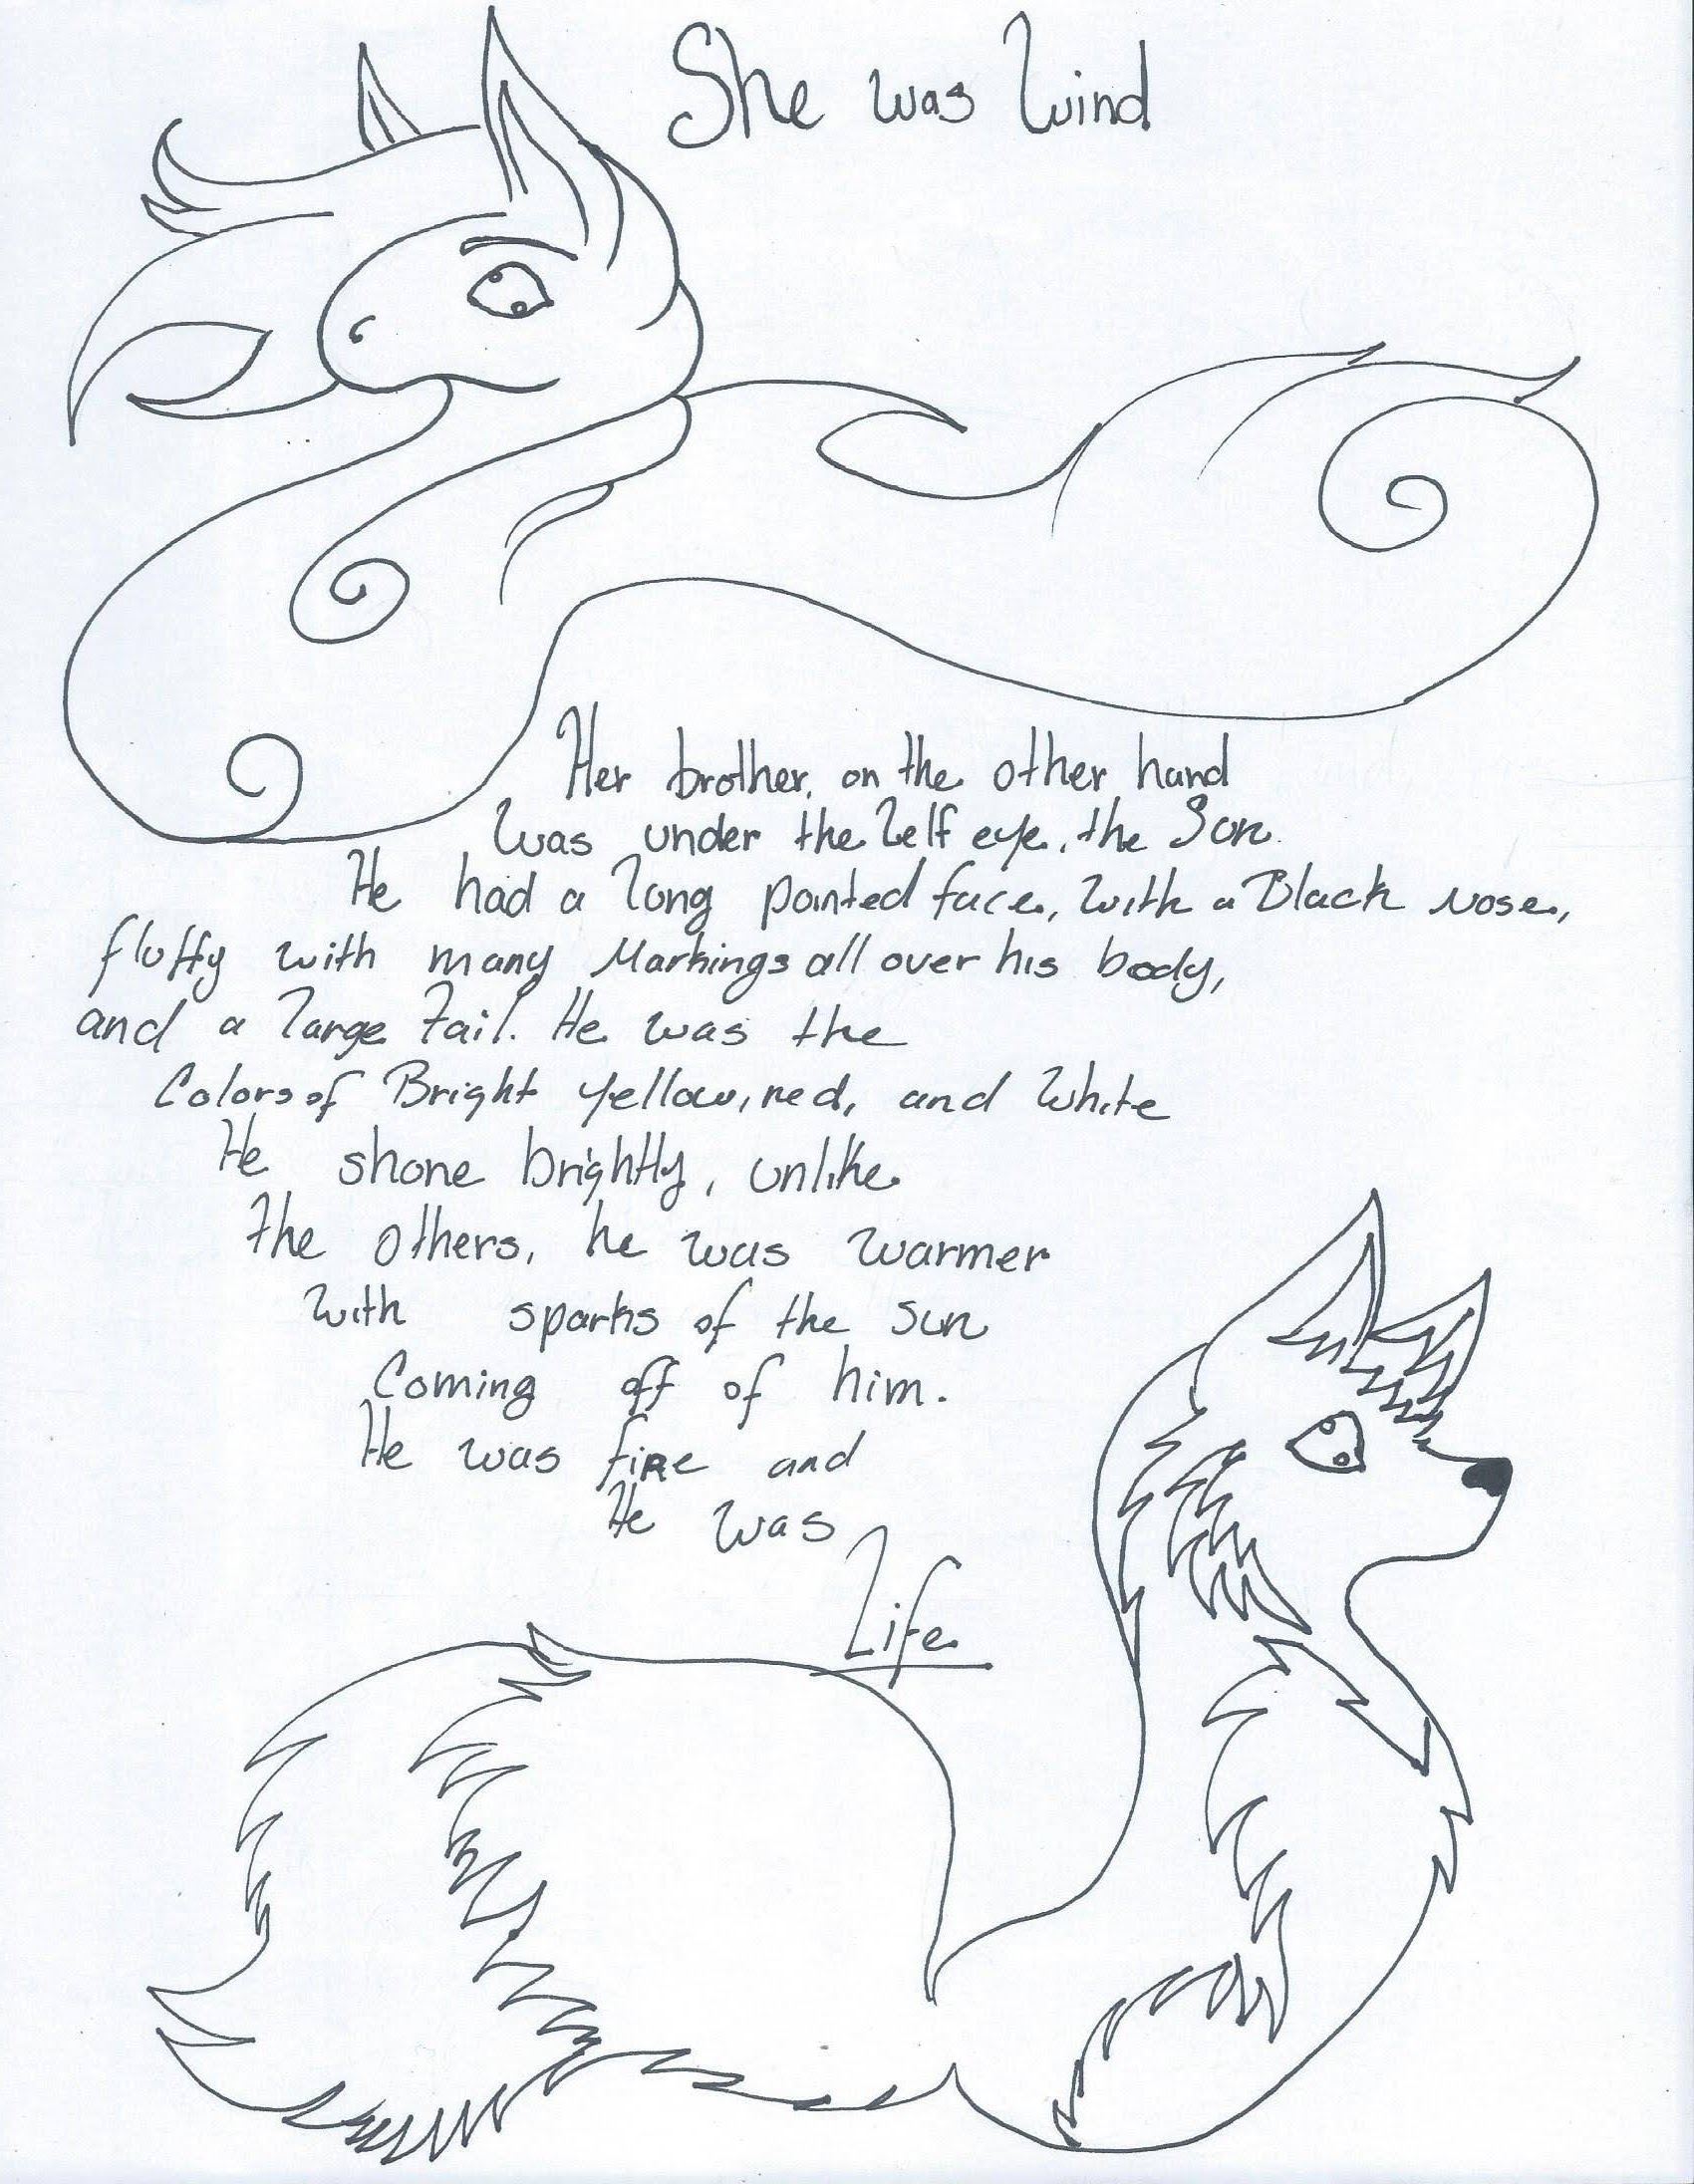 She was Wind
Her brother, on the other hand
was under the Left eye, the Sun.
He had a long pointed face, with a Black nose,
fluffy with many Markings all over his body,
and a large tail. He was the
Colors of Bright yellow, red, and White
He shone brightly, unlike
the others, he was warmer
with sparks of the sun
Coming off of him.
He was fire and
He was
Life